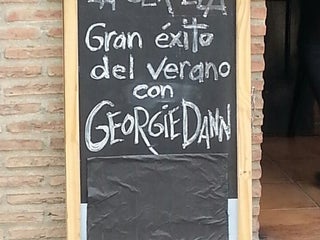 Gran éxito
del verano
con
GEORGIE DANN